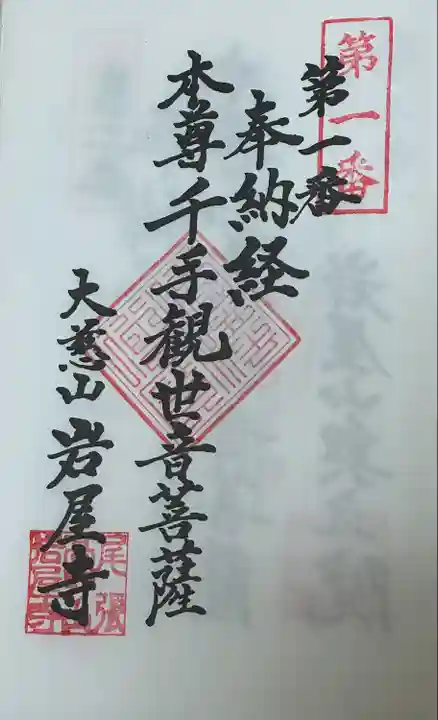 第一番
第一番
奉納経
本尊千手観世音菩薩
大慈山
岩屋寺
尾張